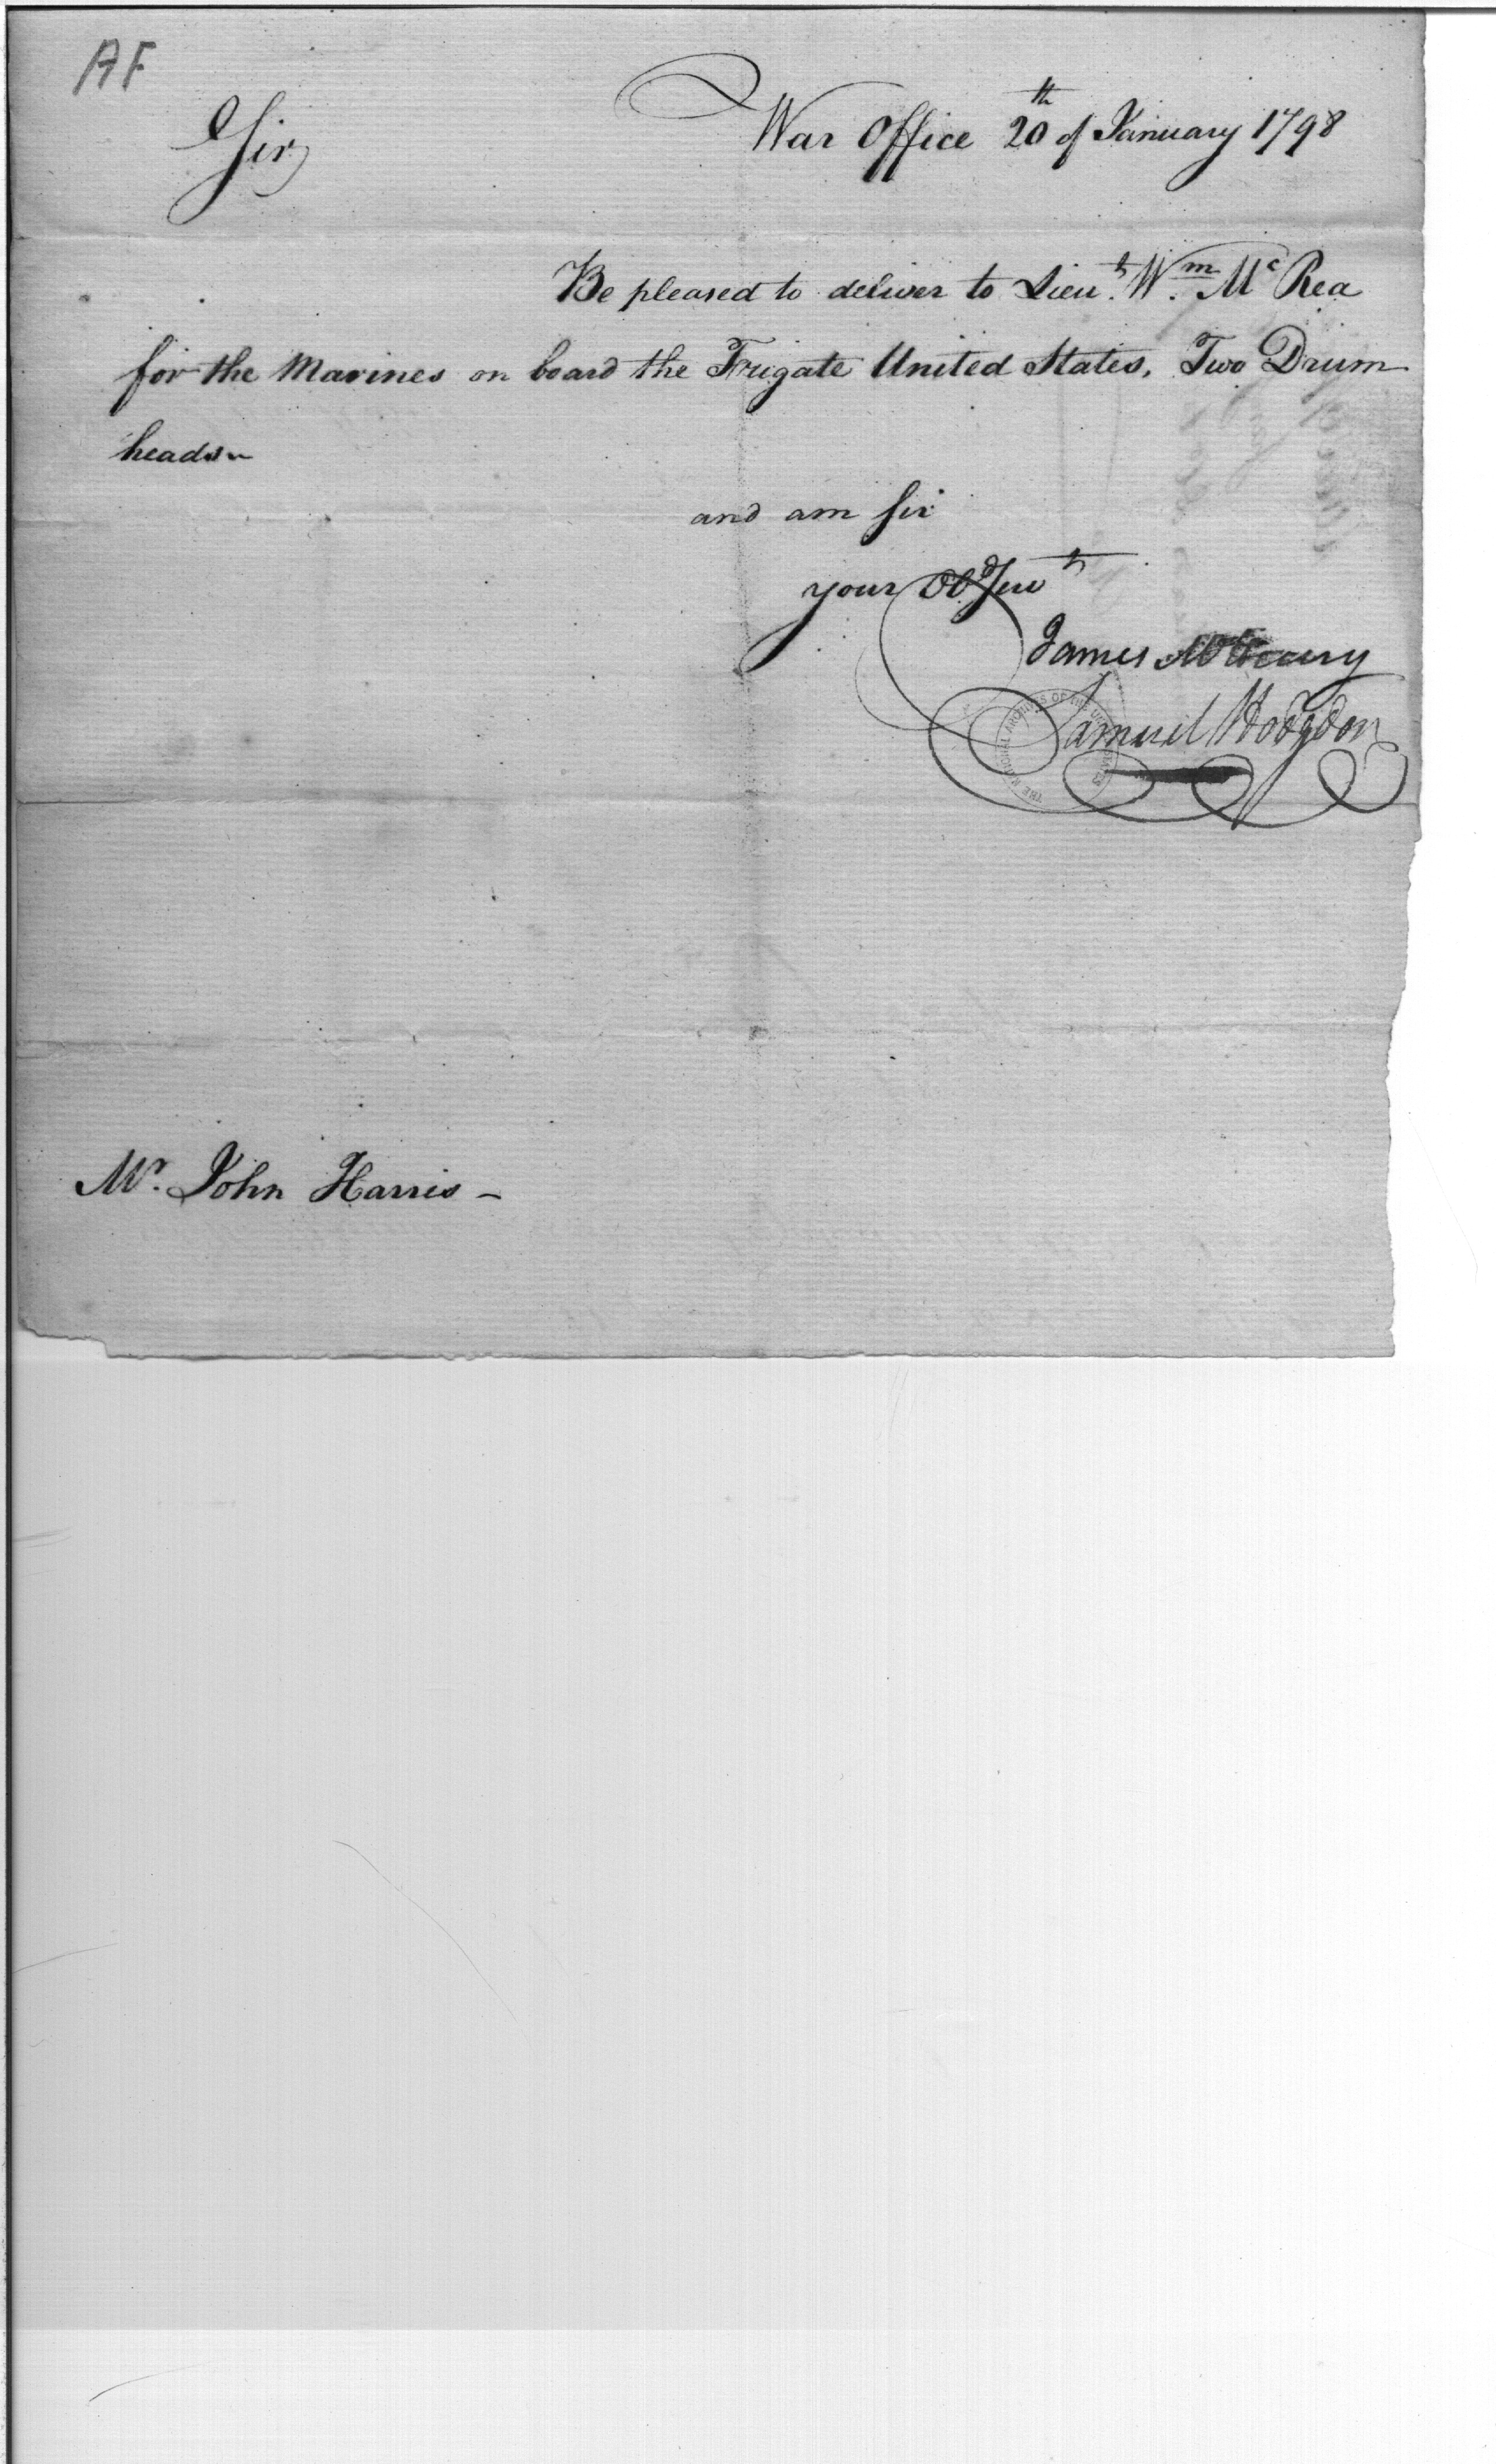 AF
War Office 20th of January 1798
Sir
Be pleased to deliver to Lieut. Wm. Mc Rea
for the Marines on board the Frigate United States, Two Drum
heads
and am Sir
your Obd Servt
James McHenry
Samuel Hodgdon
THE NATIONAL ARCHIVES OF THE UNITED STATES
Mr. John Harris -